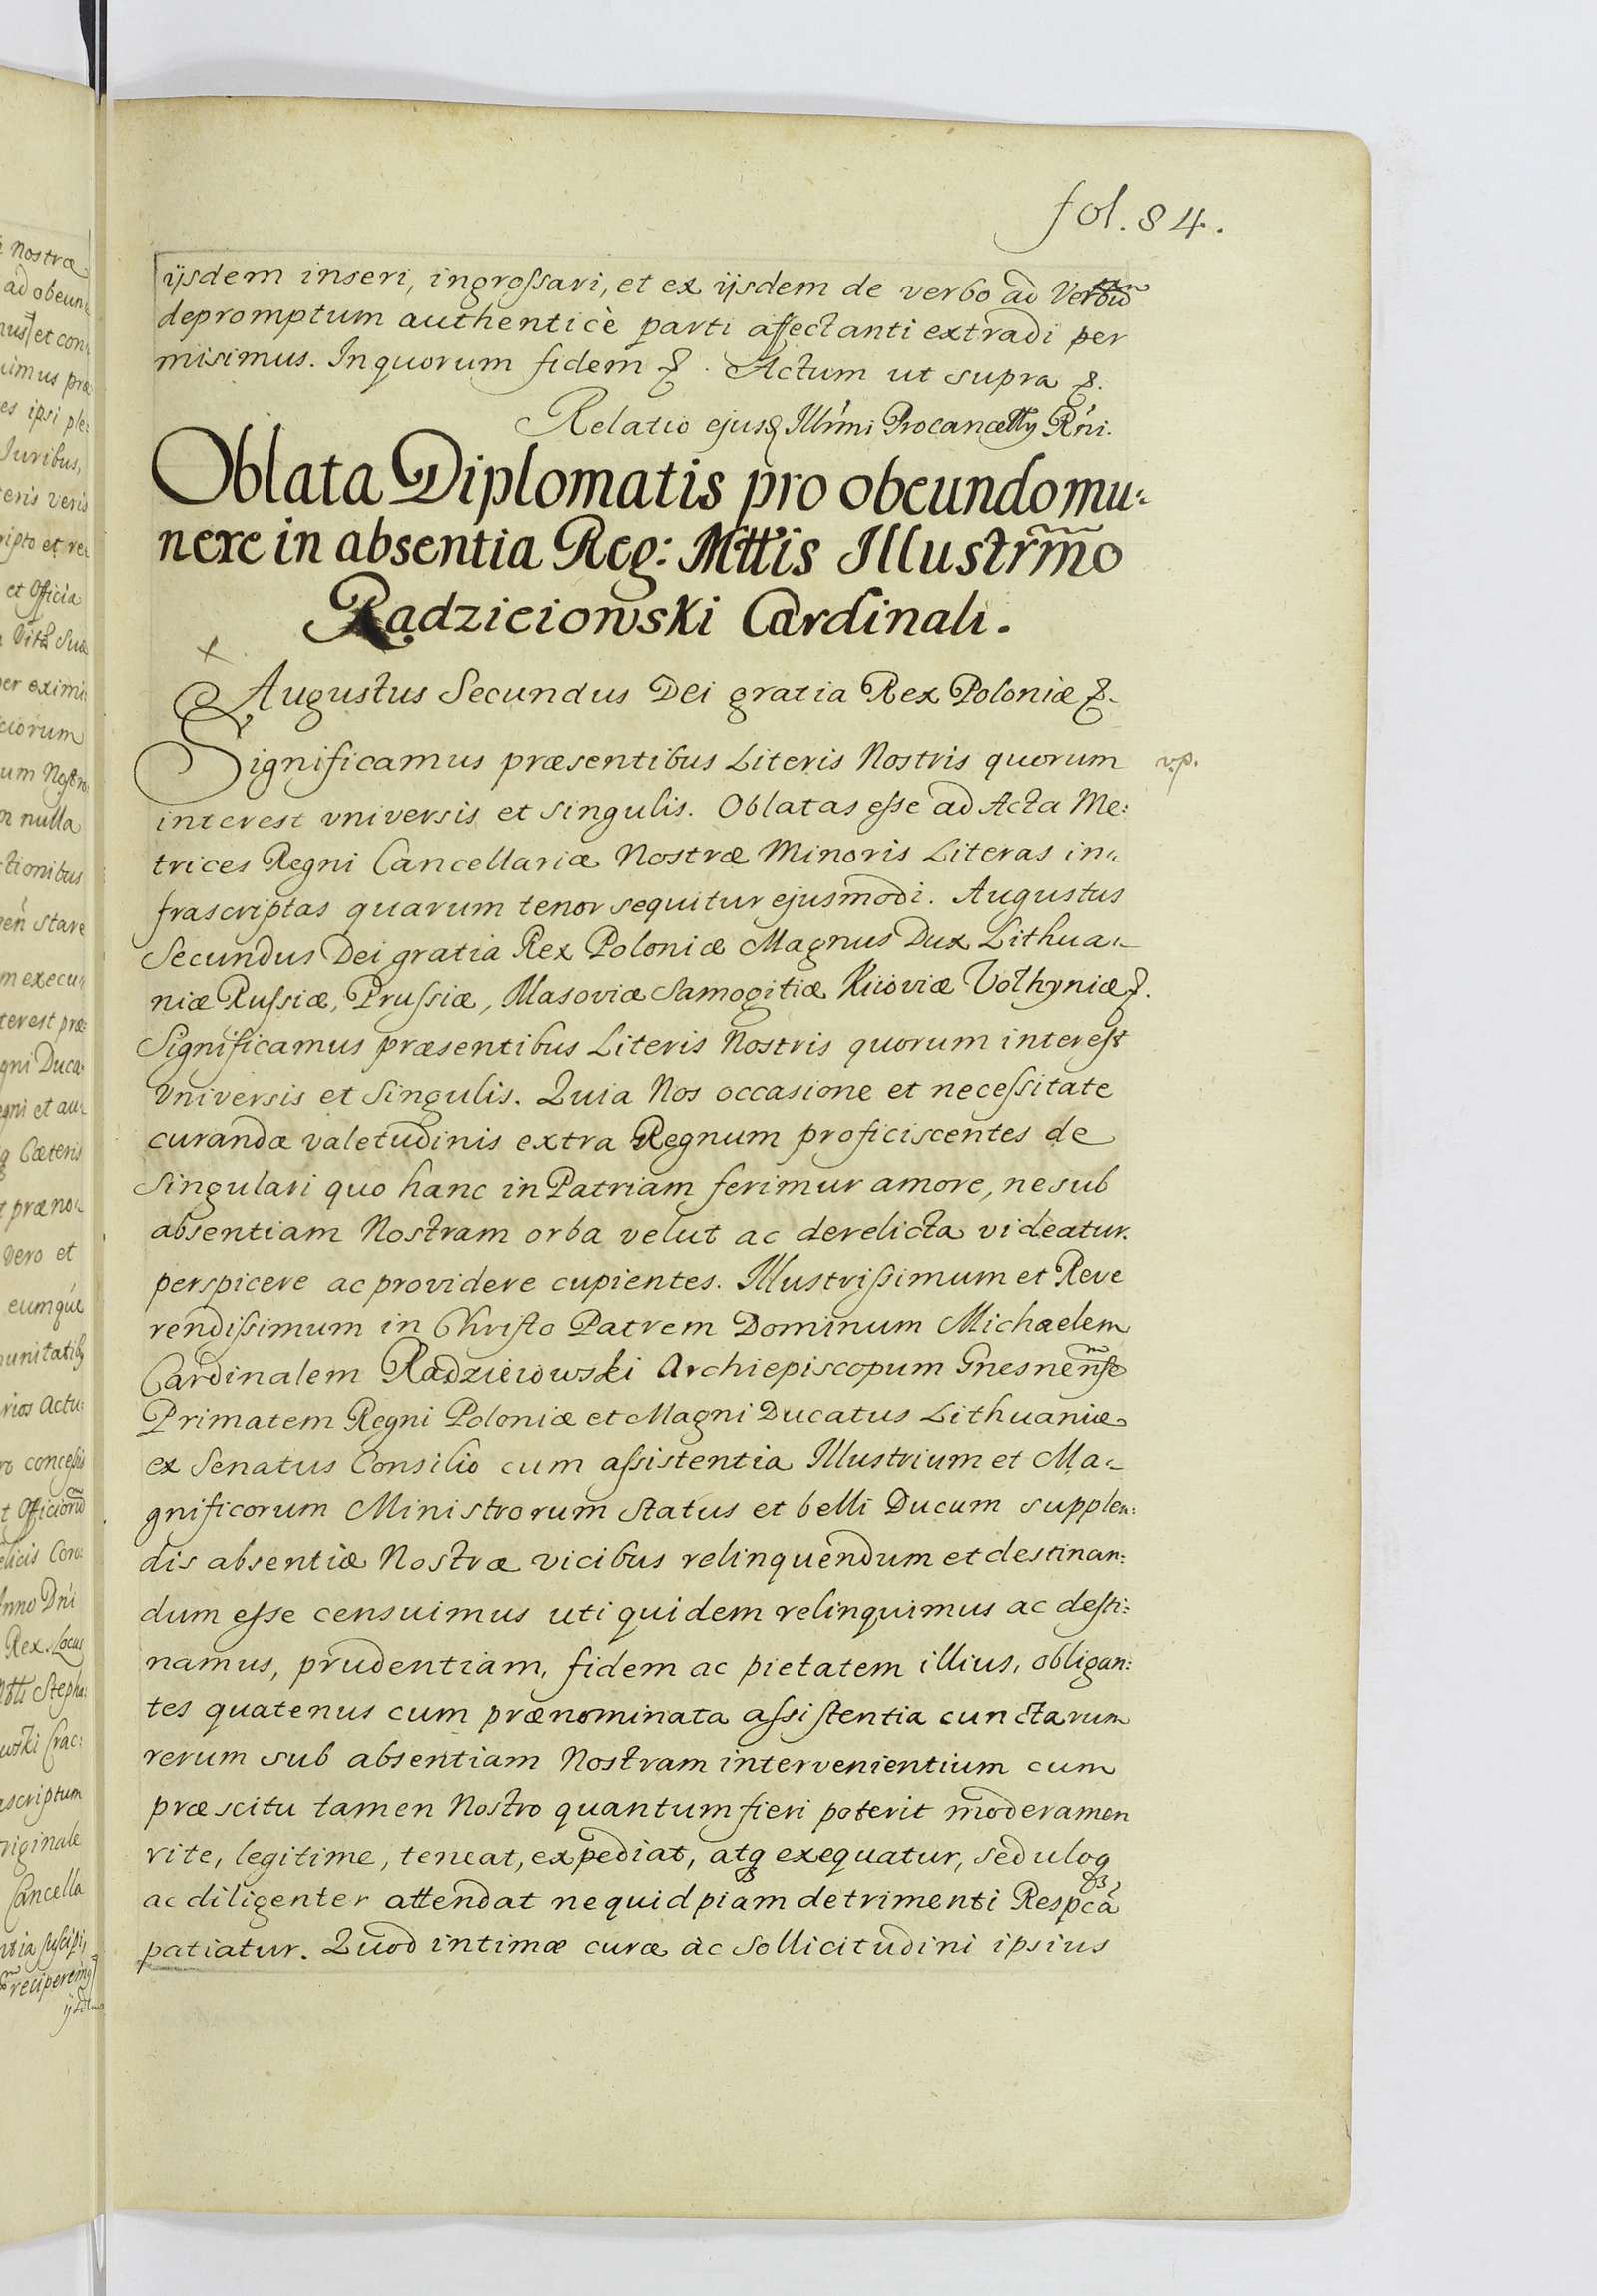 fol. 84.
ijsdem inseri, ingrossari, et ex ijsdem de verbo ad Verbũ
depromptum authenticè parti affectanti extradi per
misimus. In quorum fidem &. Actum ut supra &.
Relatio ejusd Illrmi Procancellry Rni.
Oblata Diplomatis pro obeundo mu:
nere in absentia Reg: Mttis Illustrm̃o
Radzieiowski Cardinali.
Augustus Secundus Dei gratia Rex Poloniæ &.
Significamus præsentibus Literis Nostris quorum
v.p.
interest vniversis et singulis. Oblatas esse ad Acta Me:
trices Regni Cancellariæ Nostræ Minoris Literas in:
frascriptas quarum tenor sequitur ejusmodi. Augustus
Secundus Dei gratia Rex Poloniæ Magnus Dux Lithua:
niæ Russiæ, Prussiæ, Masoviæ Samogitiæ Kiioviæ Volhyniæ &.
Significamus præsentibus Literis Nostris quorum interest
Vniversis et Singulis. Quia Nos occasione et necessitate
curandæ valetudinis extra Regnum proficiscentes de
singulari quo hanc in Patriam ferimur amore, ne sub
absentiam Nostram orba velut ac derelicta videatur.
perspicere ac providere cupientes. Illustrissimum et Reve
rendissimum in Christo Patrem Dominum Michaelem
Cardinalem Radzieiowski Archiepiscopum Gnesnense͂
Primatem Regni Poloniæ et Magni Ducatus Lithuaniæ
ex Senatus Consilio cum assistentia Illustrium et Ma:
gnificorum Ministrorum Status et belli Ducum supplen:
dis absentiæ Nostræ vicibus relinquendum et destinan:
dum esse censuimus uti quidem relinquimus ac desti:
namus, prudentiam, fidem ac pietatem illius, obligan:
tes quatenus cum prænominata assistentia cunctarum
rerum sub absentiam Nostram intervenientium cum
præscitu tamen Nostro quantum fieri poterit moderamen
rite, legitime, teneat, expediat, atq exequatur, seduloq
ac diligenter attendat ne quidpiam detrimenti Respcã
patiatur. Quod intimæ curæ ac sollicitudini ipsius